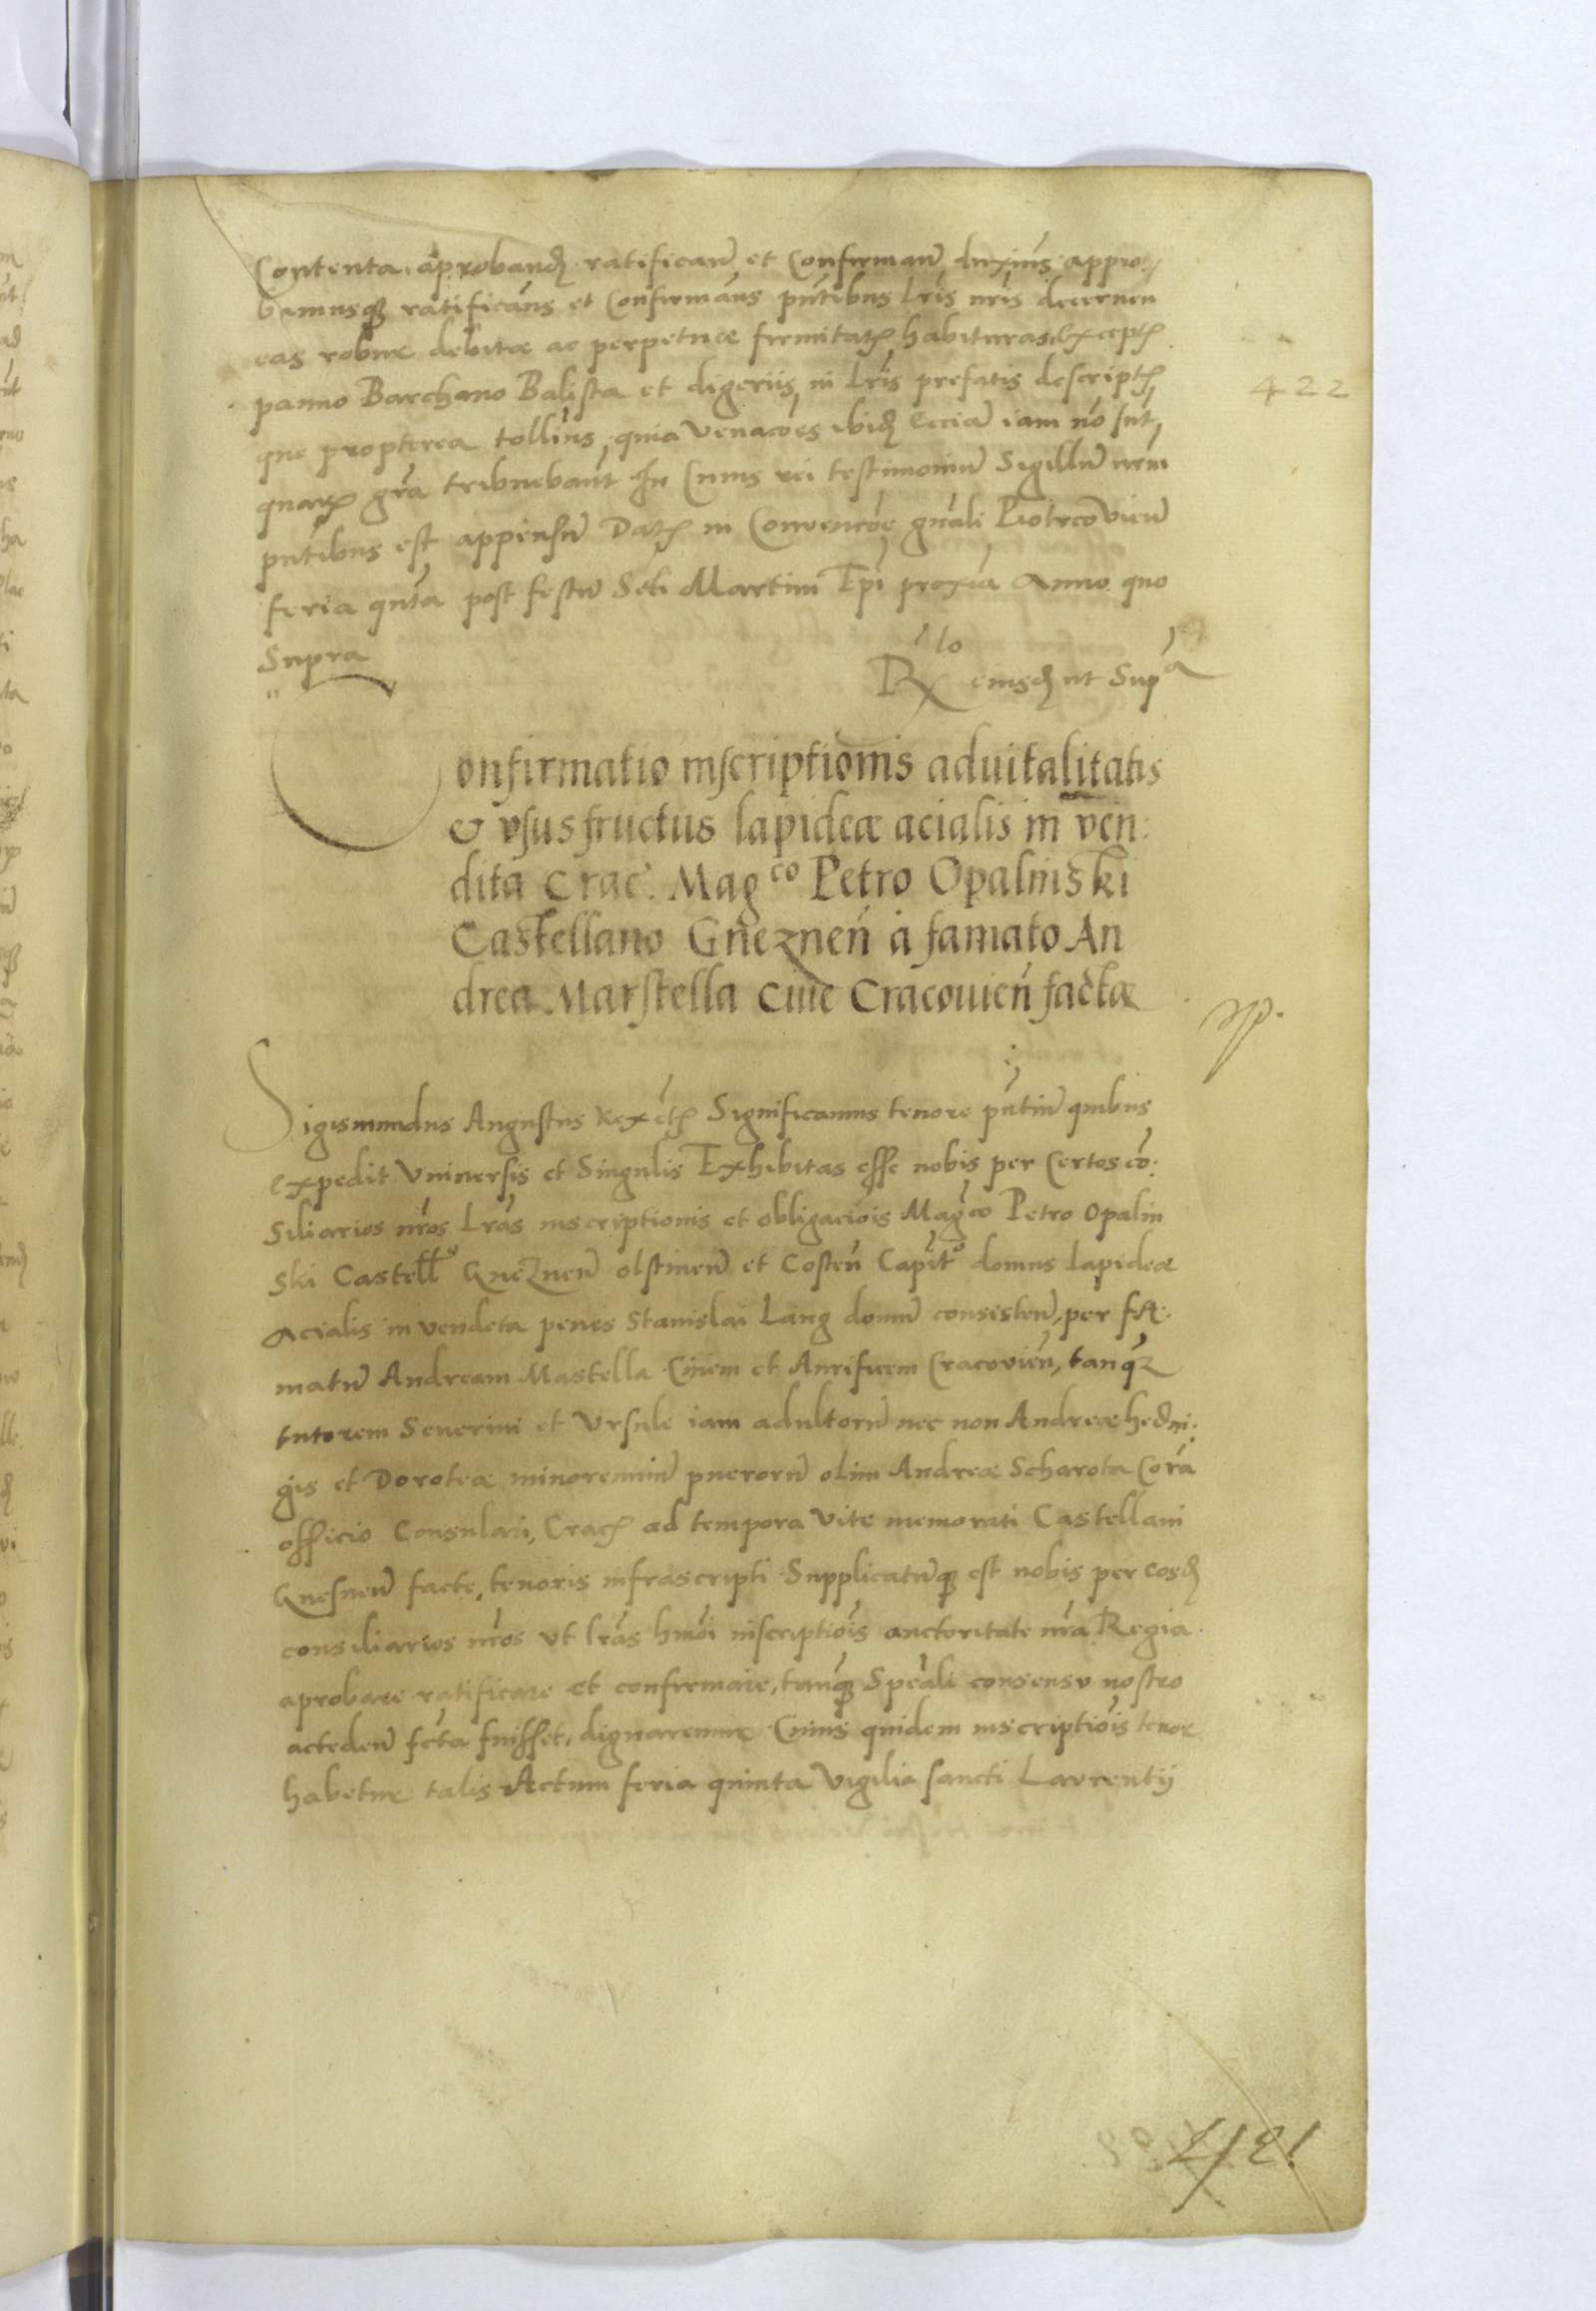 Contenta, aprobandꝫ ratifican̄ et Confirman̄ duxim̄s appro/
bamusqꝫ ratificam̄s et Confirmam̄s pn̄tibus Lr̄is nr̄is decernen
eas robur debitæ ac perpetuæ firmitatꝭ habituras, Exceptꝭ
panno Barchano Balista et digeriis, in Lr̄is prefatis descriptꝭ
422
que propterea tollim̄s, quia Venacōes ibidꝫ eciā iam nō sn̄t,
quarꝝ gr̄a tribuebant̄ In Cuius rei testimoniū Sigillū nrm̄
pn̄tibus est appensū Datꝭ in Convencōe gn̄ali Piotrcovien̄
feria qn̄ta post festū Scti Martini Epi proxīa Anno quo
Supra
Rlo eiusdꝫ ut Supa
Confirmatio inscriptionis aduitalitatis
& vsusfructus lapideæ acialis in ven:
dita Crac̄. Magco Petro Opalinski
Castellano Gneznen̄ a famato An
drea Marstella Ciue Cracouien̄ factæ
Sigismundus Augustus Rex etꝭ Significamus tenore pn̄tiū quibus
expedit Vniuersis et Singulis Exhibitas esse nobis per Certos cō:
Siliarios nr̄os Lr̄as inscriptionis et obligaciōis Magco Petro Opalin
ski Castello Gneznen̄ olstinen̄ et Costen̄ Capito domus Lapideæ
Acialis in vendeta penes Stanislai Lang domū consisten̄, per fa:
matū Andream Mastella Ciuem et Aurificem Cracovien̄, tanqꝫ
tutorem Seuerini et Vrsule iam adultorū nec non Andreæ hedui:
gis et Doroteæ minorenniū puerorū olim Andreæ Scharota Corā
officio Consulari, Cracꝭ ad tempora Vite memorati Castellani
Gnesnen̄ facte, tenoris infrascripti Supplicatūqꝫ est nobis per eosdꝫ
consiliarios nr̄os vt lr̄as hmōi inscriptiōis auctoritate nr̄a Regia
aprobare ratificare et confirmare, tanqꝫ Speāli consensv nostro
acceden̄ fcta fuisset, dignaremur Cuius quidem inscriptiōis tenor
habetur talis Actum feria quinta Vigilia sancti Laurentij